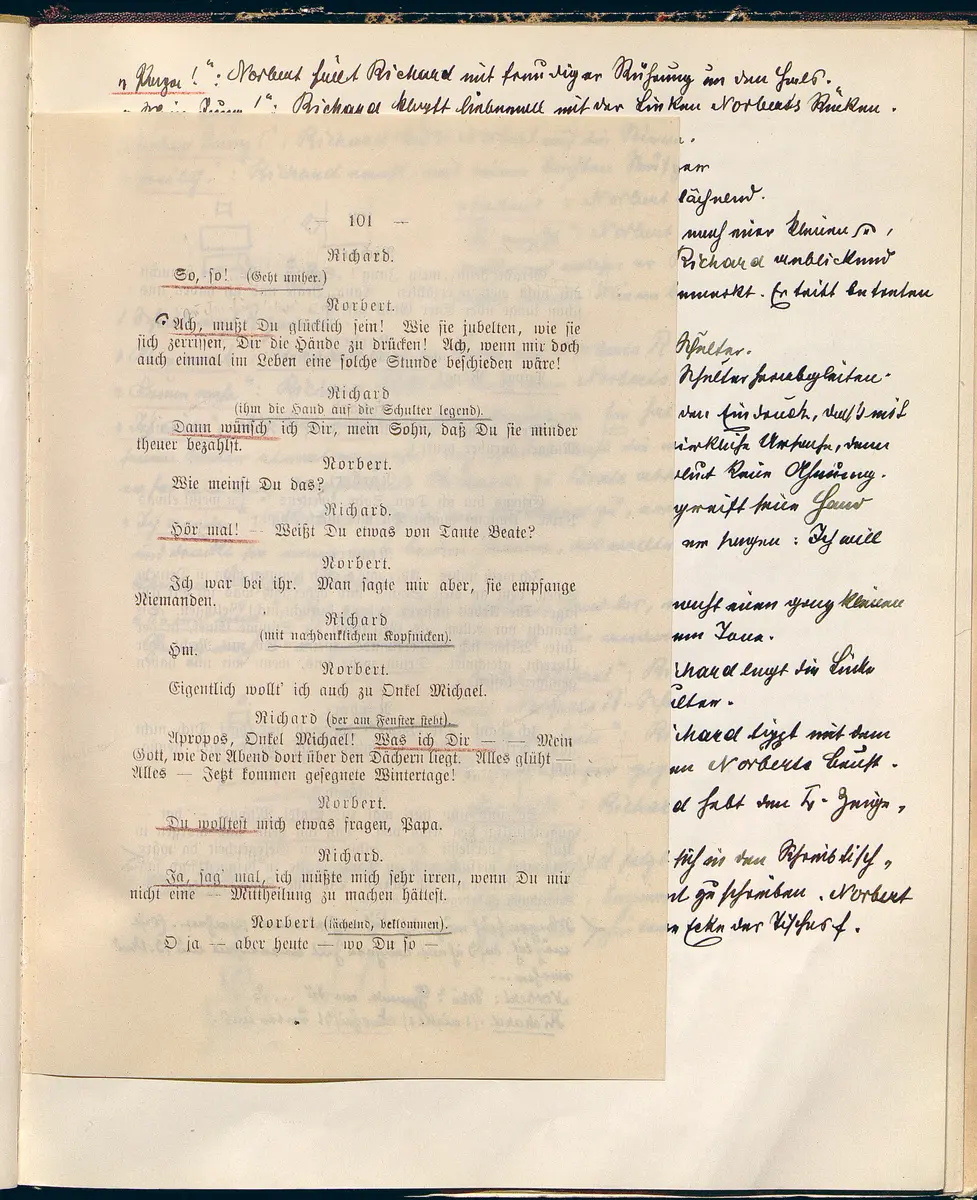 „Papa!“: Norbert fällt Richard mit freudiger Rührung um den Hals.
Richard klopft liebevoll mit der Linken Norberts Rücken.
— 101 —
Richard.
So, so! (Geht umher.)
Norbert.
Ach, mußt Du glücklich sein! Wie sie jubelten, wie sie
sich zerrissen, Dir die Hände zu drücken! Ach, wenn mir doch
auch einmal im Leben eine solche Stunde beschieden wäre!
Richard
(ihm die Hand auf die Schulter legend).
Dann wünsch' ich Dir, mein Sohn, daß Du sie minder
theuer bezahlst.
Norbert.
Wie meinst Du das?
Richard.
Hör mal! — Weißt Du etwas von Tante Beate?
Norbert.
Ich war bei ihr. Man sagte mir aber, sie empfange
Niemanden.
Richard
(mit nachdenklichem Kopfnicken).
Hm.
Norbert.
Eigentlich wollt' ich auch zu Onkel Michael.
Richard (der am Fenster steht).
Apropos, Onkel Michael! Was ich Dir — — Mein
Gott, wie der Abend dort über den Dächern liegt. Alles glüht —
Alles — Jetzt kommen gesegnete Wintertage!
Norbert.
Du wolltest mich etwas fragen, Papa.
Richard.
Ja, sag' mal, ich müßte mich sehr irren, wenn Du mir
nicht eine — Mittheilung zu machen hättest.
Norbert (lächelnd, beklommen).
O ja — aber heute — wo Du so —
lächelnd.
nach einer kleinen
Richard anblickend
bemerkt. Er tritt betreten
Schulter.
Schulter herabgleiten.
den Eindruck, daß mit
wirkliche Ursache, denn
keine Ahnung.
ergreift seine Hand
er sagen: Ich will
macht einen ganz kleinen
Tone.
Richard legt die Linke
Schulter.
Richard tippt mit dem
Norberts Brust.
hebt den Zeige-
sich in den Schreibtisch-
zu schreiben. Norbert
Ecke des Tisches